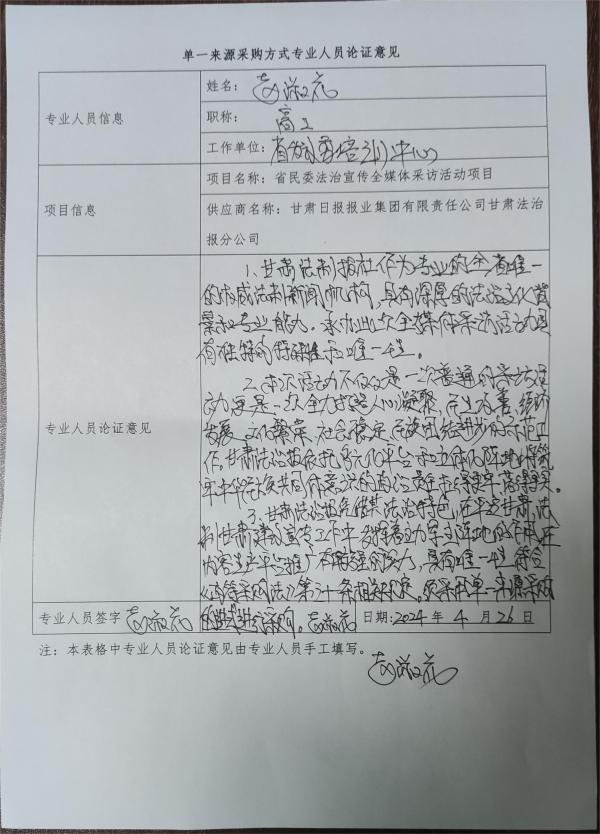 单一来源采购方式专业人员论证意见
专业人员信息
姓名：赵淑花
职称：高工
工作单位：培训中心
项目信息
项目名称：省民委法治宣传全媒体采访活动项目
供应商名称：甘肃日报报业集团有限责任公司甘肃法治
报分公司
专业人员论证意见
1、甘肃法制报社作为专业的全省唯一
的权威法制新闻机构，具有深厚的法治文化背
景和专业能力．承办此次全媒体采访活动具
有独特的特殊性和唯一性。
2、本次活动不仅仅是一次普通的采访活
动，更是一次全力 人心凝聚、民生改善、经济
发展、文化繁荣、社会稳定、民族团结进步的示范工
作。甘肃法治报依托多元化平台和立体化阵地将筑
牢中华民族共同体意识的
3、甘肃法治报凭借其法治特色，在平安甘肃、法
治甘肃建设宣传工作中发挥着 阵地的作用，在
内容生产平台推广 的 力，具有唯一性，符合
《政府采购法》第三十条相关规定，须采用单一来源采购
的方式进行采购。赵淑花
专业人员签字 赵淑花
日期：2024 年 4 月 26 日
注：本表格中专业人员论证意见由专业人员手工填写。
赵淑花